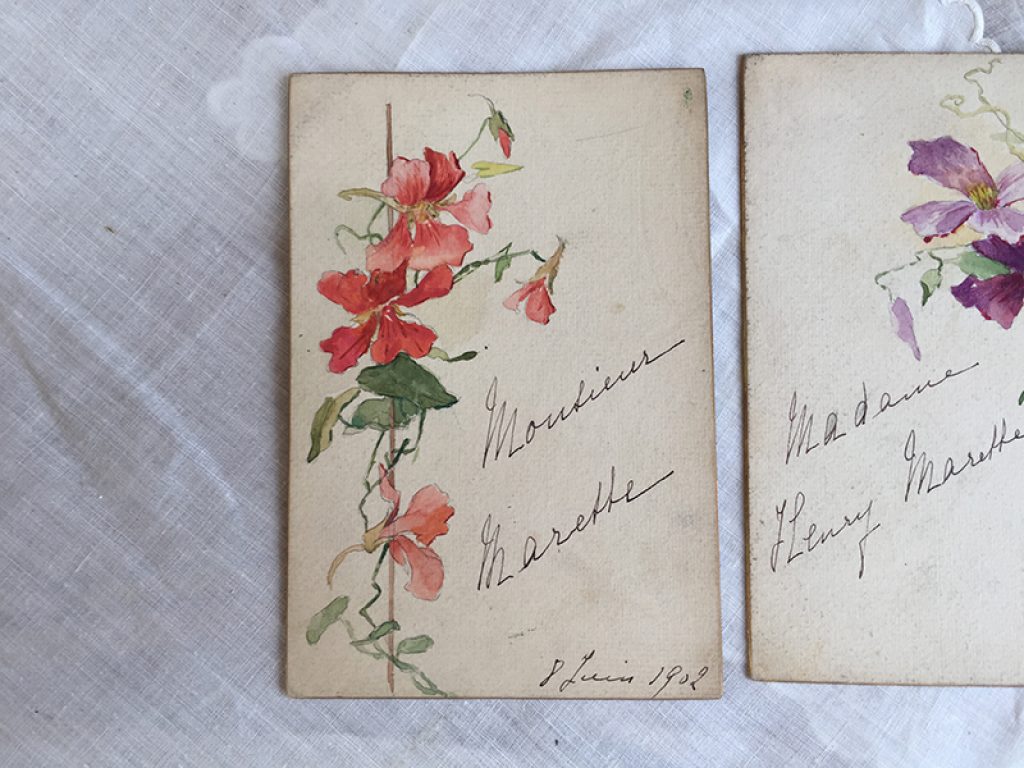 Monsieur
Marette
8 Juin 1902
Madame
Henry Marette